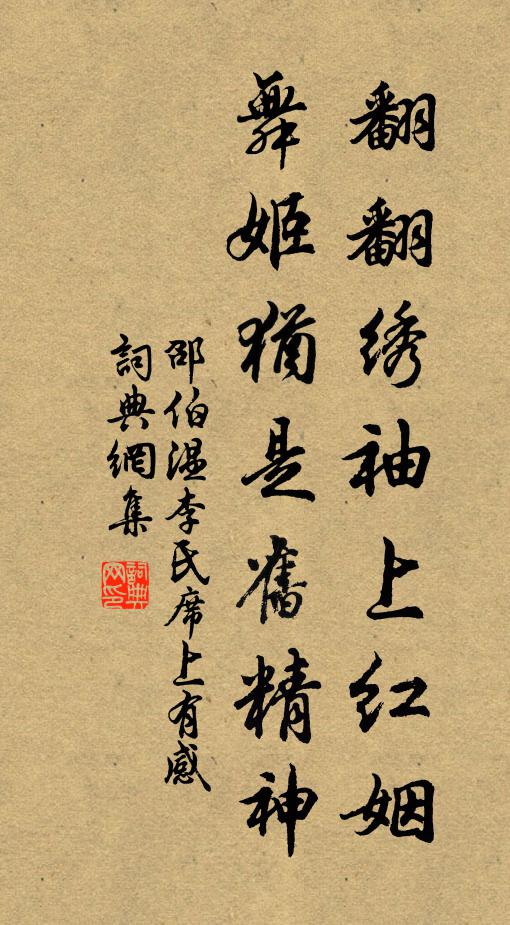 翻翻绣袖上红姻
舞姬猶是舊精神
邵伯温李氏席上有感
詞典網集
詞典網印